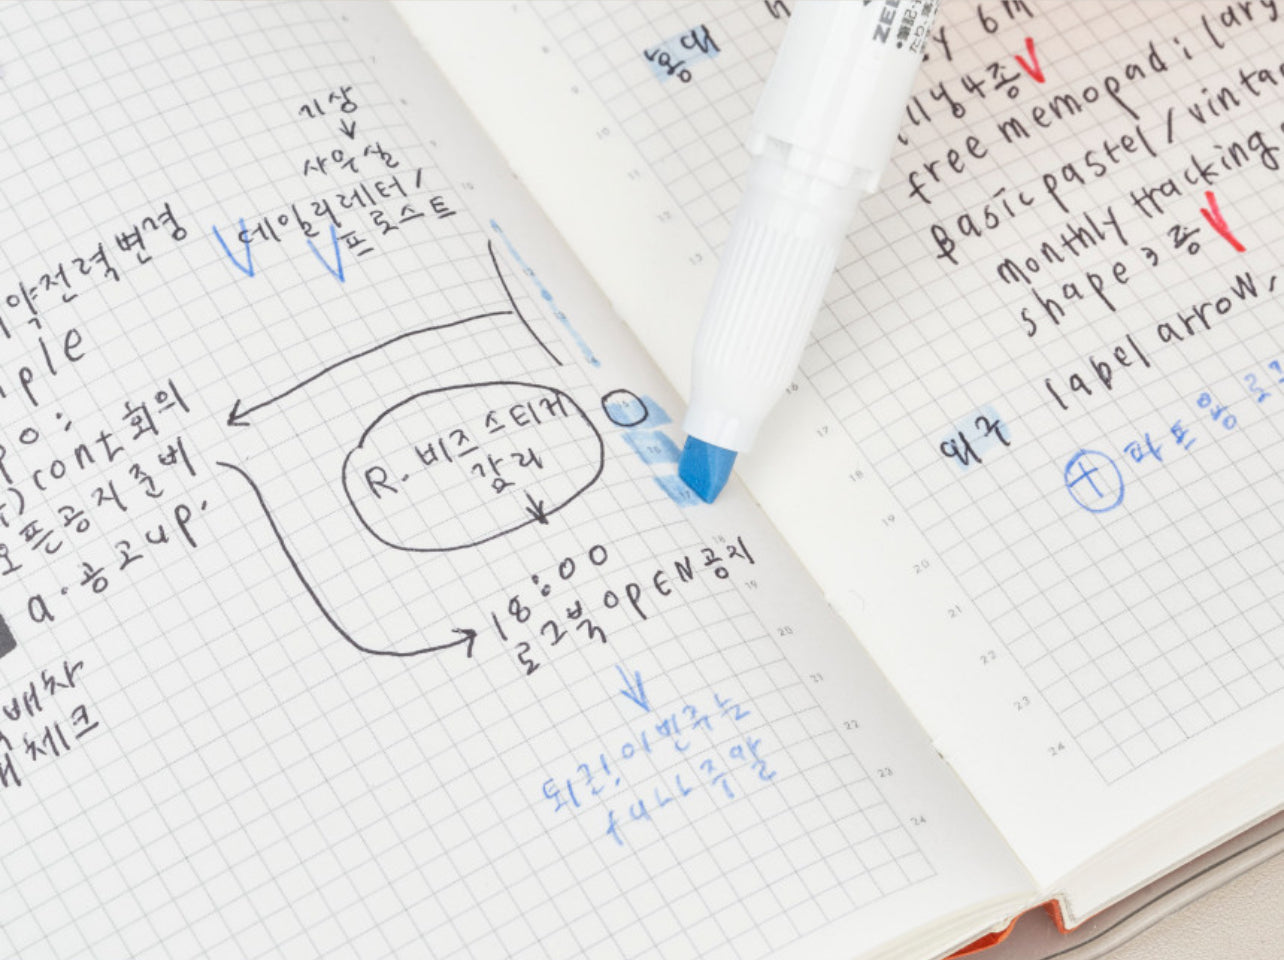 기상
사무실
데일리레터/
프로스트
약전력변경
ple
po:
cont회의
오픈공지준비
a.공고up.
배차
체크
R. 비즈스티커
감리
18:00
로그북OPEN공지
퇴근!이번주는
full주말
6 7 8 9 10
15
16
17
18
19
20
21
22
23
24
ZEB
용배
6m
4종
free memopad : lary
basic pastel / vintag
monthly tracking
shape 3종
label arrow,
외주
+ 파트
10
11
12
13
16
17
18
19
20
21
22
23
24